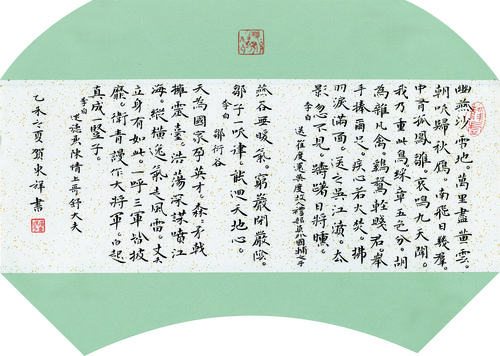 幽燕沙雪地。萬里盡黄雲。
朝吹歸秋鴈。南飛日幾群。
中有孤鳳雛。哀鳴九天聞。
我乃重此鳥。綵章五色分。胡
為雜凡禽。鷄鶩輕賤君。舉
手捧爾足。疾心若火焚。拂
羽淚滿面。送之吴江濆。去
影忽不見。躊躇日將曛。
李白
送崔度還吴度故人禮部員外國輔之子
燕谷無暖氣。窮巖閉嚴陰。
鄒子一吹律。能迴天地心。
李白 鄒衍谷
天為國家孕英才。森森矛戟
擁靈臺。浩蕩深謀噴江
海。縱橫逸氣走風雷。丈夫
立身有如此。一呼三軍皆披
靡。衛青謾作大將軍。白起
真成一豎子。
李白
述德兼陳情上哥舒大夫
乙未之夏賀東祥書